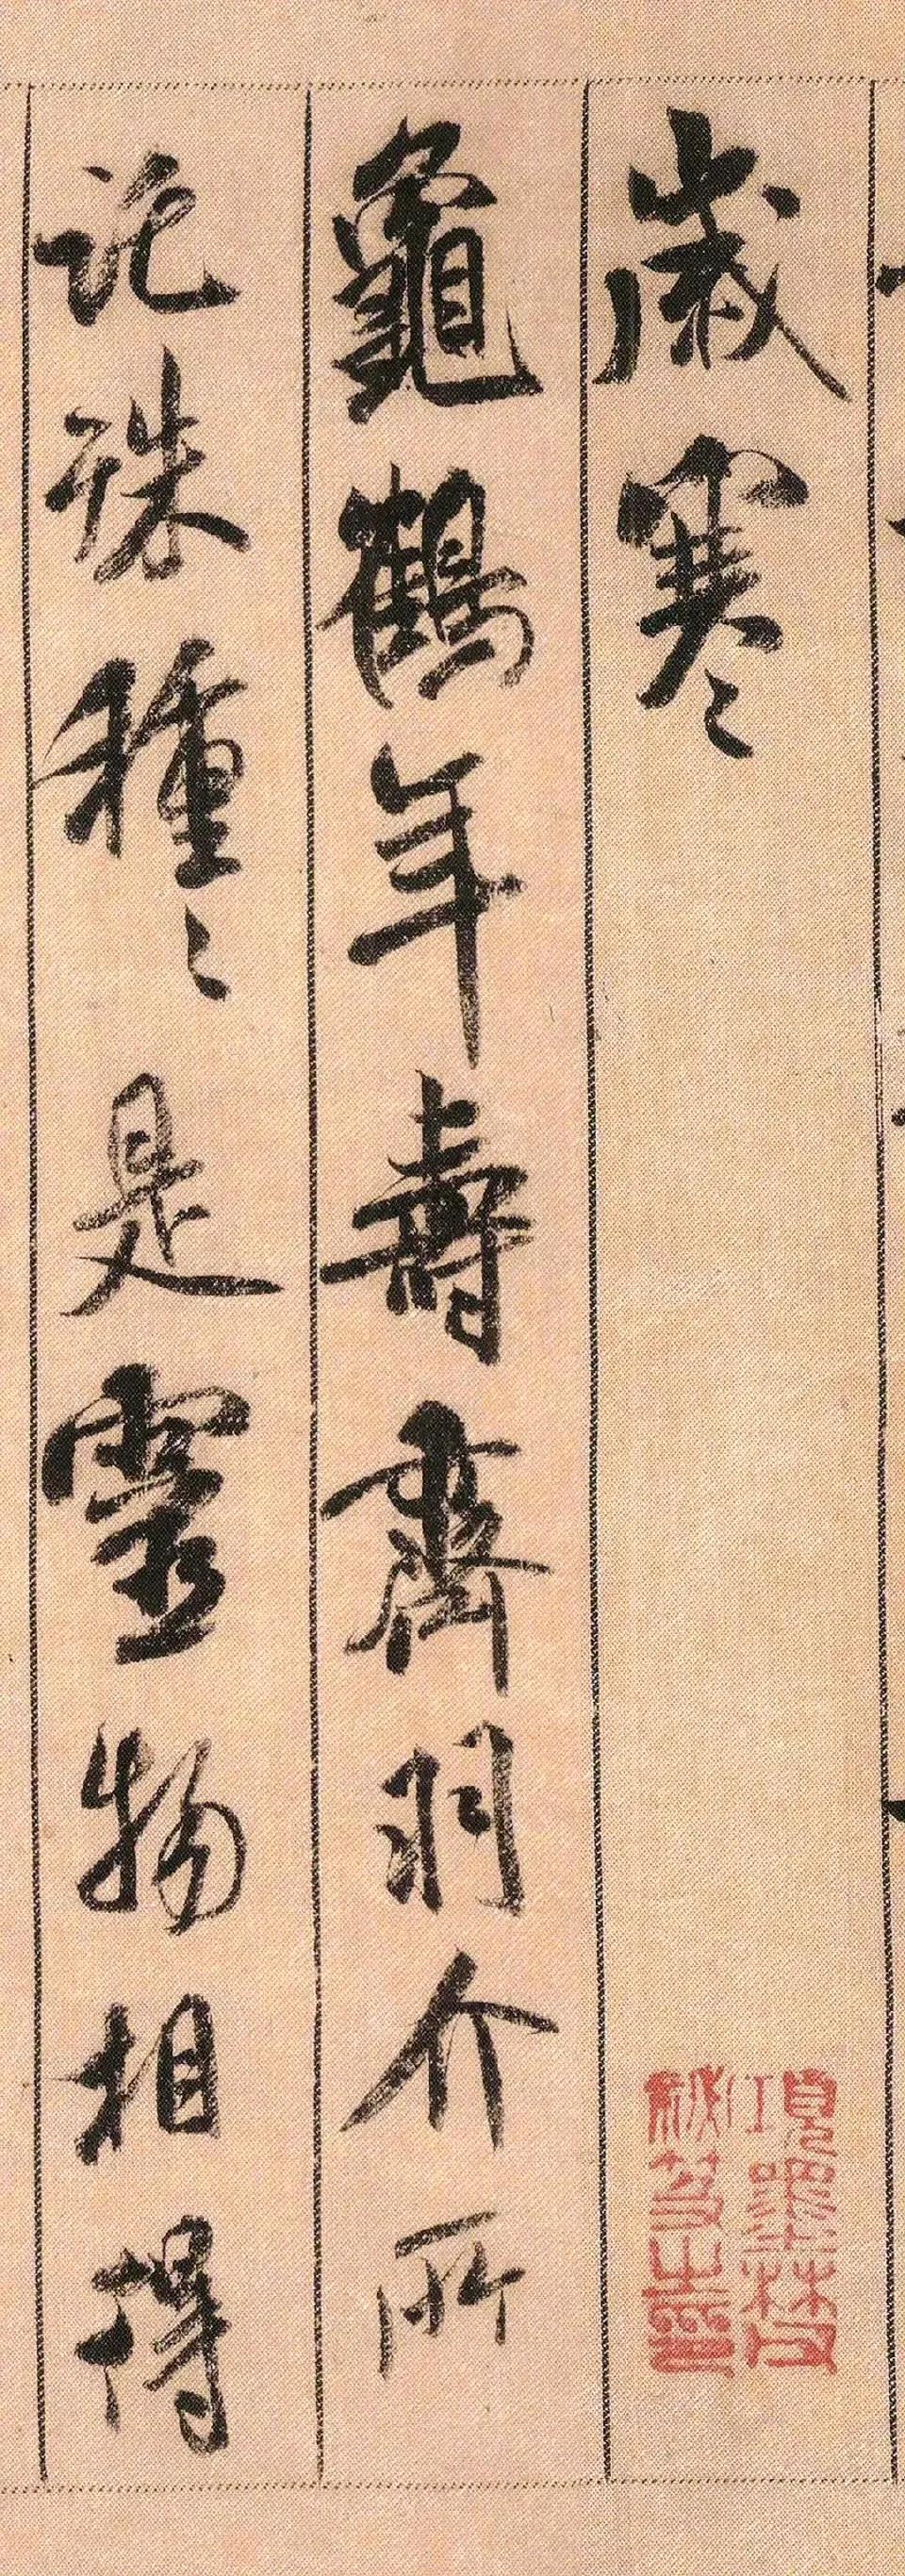 歲寒
項墨林父
秘笈之印
龜鶴年壽齊羽介所
託殊種〻是靈物相得